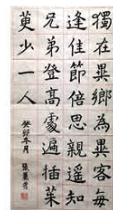 獨在異鄉為異客每
逢佳節倍思親遙知
兄弟登高處遍插茱
萸少一人
癸卯冬月 張